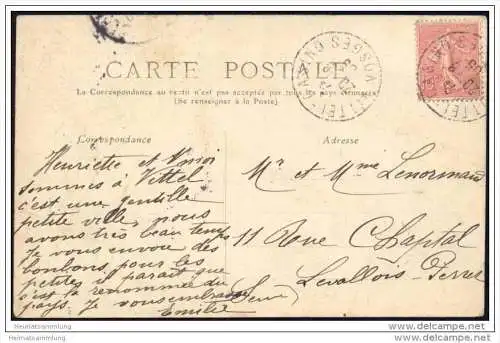 CARTE POSTALE
La Correspondance au recto n'est pas acceptée par tous les pays étrangers
(Se renseigner à la Poste).
Correspondance
Adresse
Henriette et moi
sommes à Vittel
c'est une gentille
petite ville, nous
avons très beau temps
Je vous envoie des
bonbons pour les
petites il parait que
c'est la renommée du
pays. Je vous embrasse
Emilie
Mr et Mme Lenormand
11 Rue Chaptal
Levallois-Perret
Seine
VITTEL VOSGES
Heimatsammlung
Heimatsammlung.com
http://www.delcampe.net